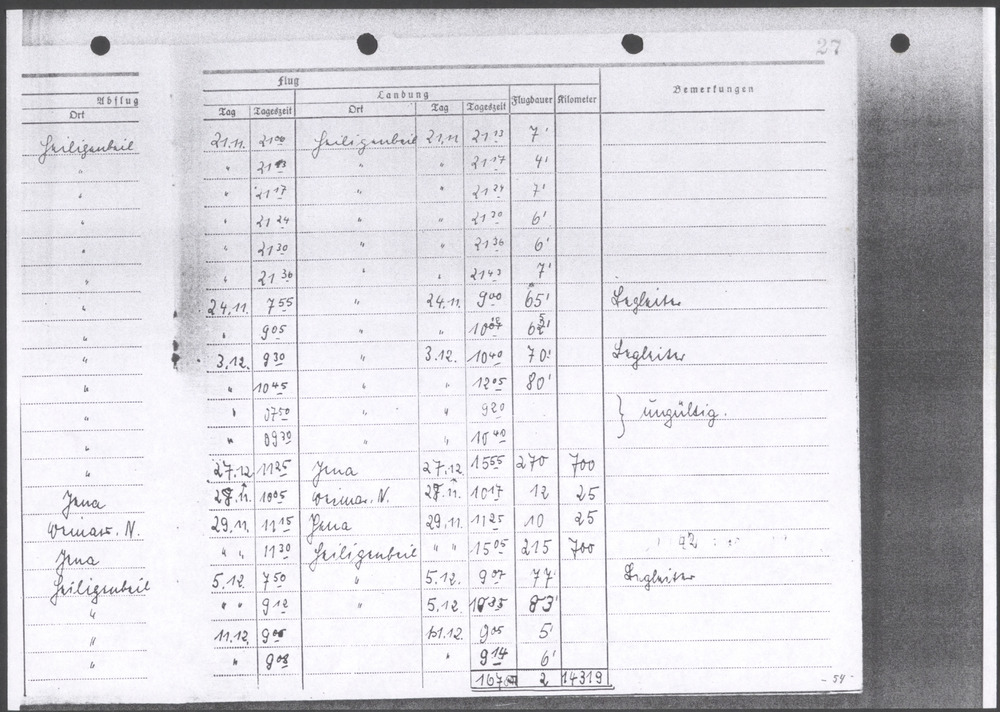 27
Flug
Abflug Landung Flugdauer Kilometer Bemerkungen
Ort Tag Tageszeit Ort Tag Tageszeit
Heiligenbeil 21.11. 21 00 Heiligenbeil 21.11 21 13 7'
" " 21 13 " " 21 17 4'
" " 21 17 " " 21 24 7'
" " 21 24 " " 21 30 6'
" " 21 30 " " 21 36 6'
" " 21 36 " " 21 43 7'
" 24.11. 7 55 " 24.11. 9 00 65' Begleiter
" " 9 05 " "
" 3.12. 9 30 " 3.12. 10 40 70' Begleiter
" " 10 45 " " 12 05 80'
" " 07 50 " " 9 20 } ungültig.
" " 09 30 " " 10 40
" 27.12 11 25 Jena 27.12. 15 55 270 700
Jena 10 05 Weimar. N. 10 17 12 25
Weimar. N. 29.11. 11 15 Jena 29.11. 11 25 10 25
Jena " " 11 30 Heiligenbeil " " 15 05 215 700
Heiligenbeil 5.12. 7 50 " 5.12. 9 07 77' Begleiter
" " " 9 12 " 5.12. 83'
" 11.12. 11.12. 9 05 5'
" " 9 08 " 9 14 6'
2 14319
- 54 -